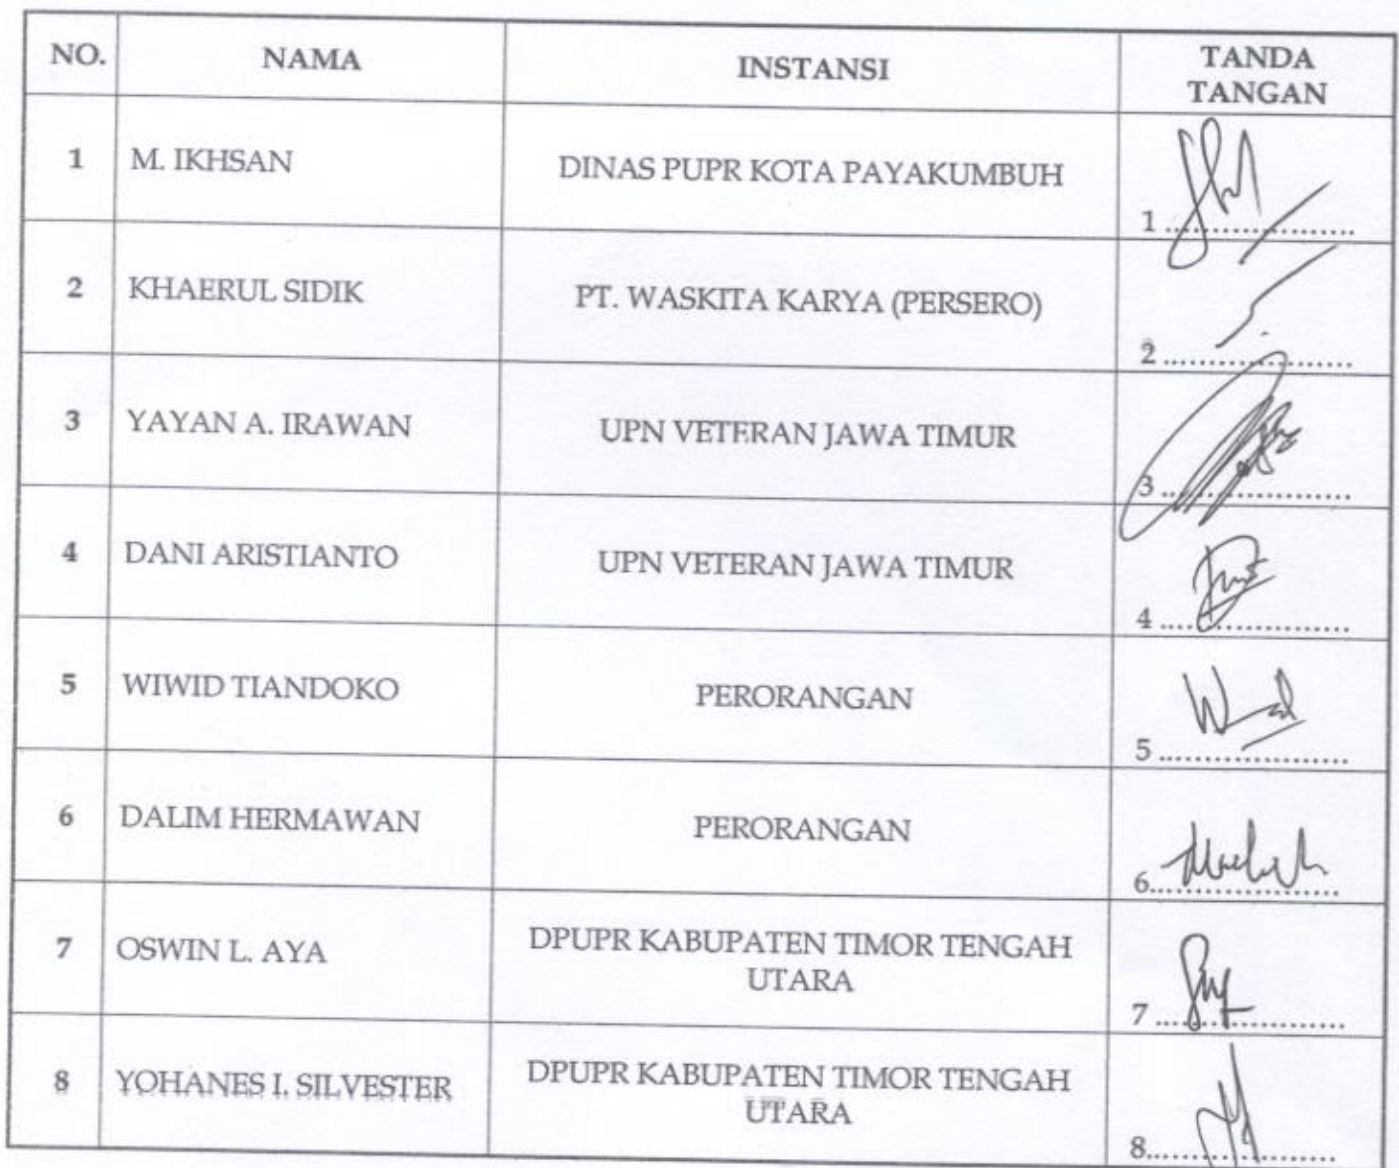 NO. NAMA INSTANSI TANDA TANGAN
1 M. IKHSAN DINAS PUPR KOTA PAYAKUMBUH 1
2 KHAERUL SIDIK PT. WASKITA KARYA (PERSERO) 2
3 YAYAN A. IRAWAN UPN VETERAN JAWA TIMUR 3
4 DANI ARISTIANTO UPN VETERAN JAWA TIMUR 4
5 WIWID TIANDOKO PERORANGAN 5
6 DALIM HERMAWAN PERORANGAN 6
7 OSWIN L. AYA DPUPR KABUPATEN TIMOR TENGAH UTARA 7
8 YOHANES I. SILVESTER DPUPR KABUPATEN TIMOR TENGAH UTARA 8